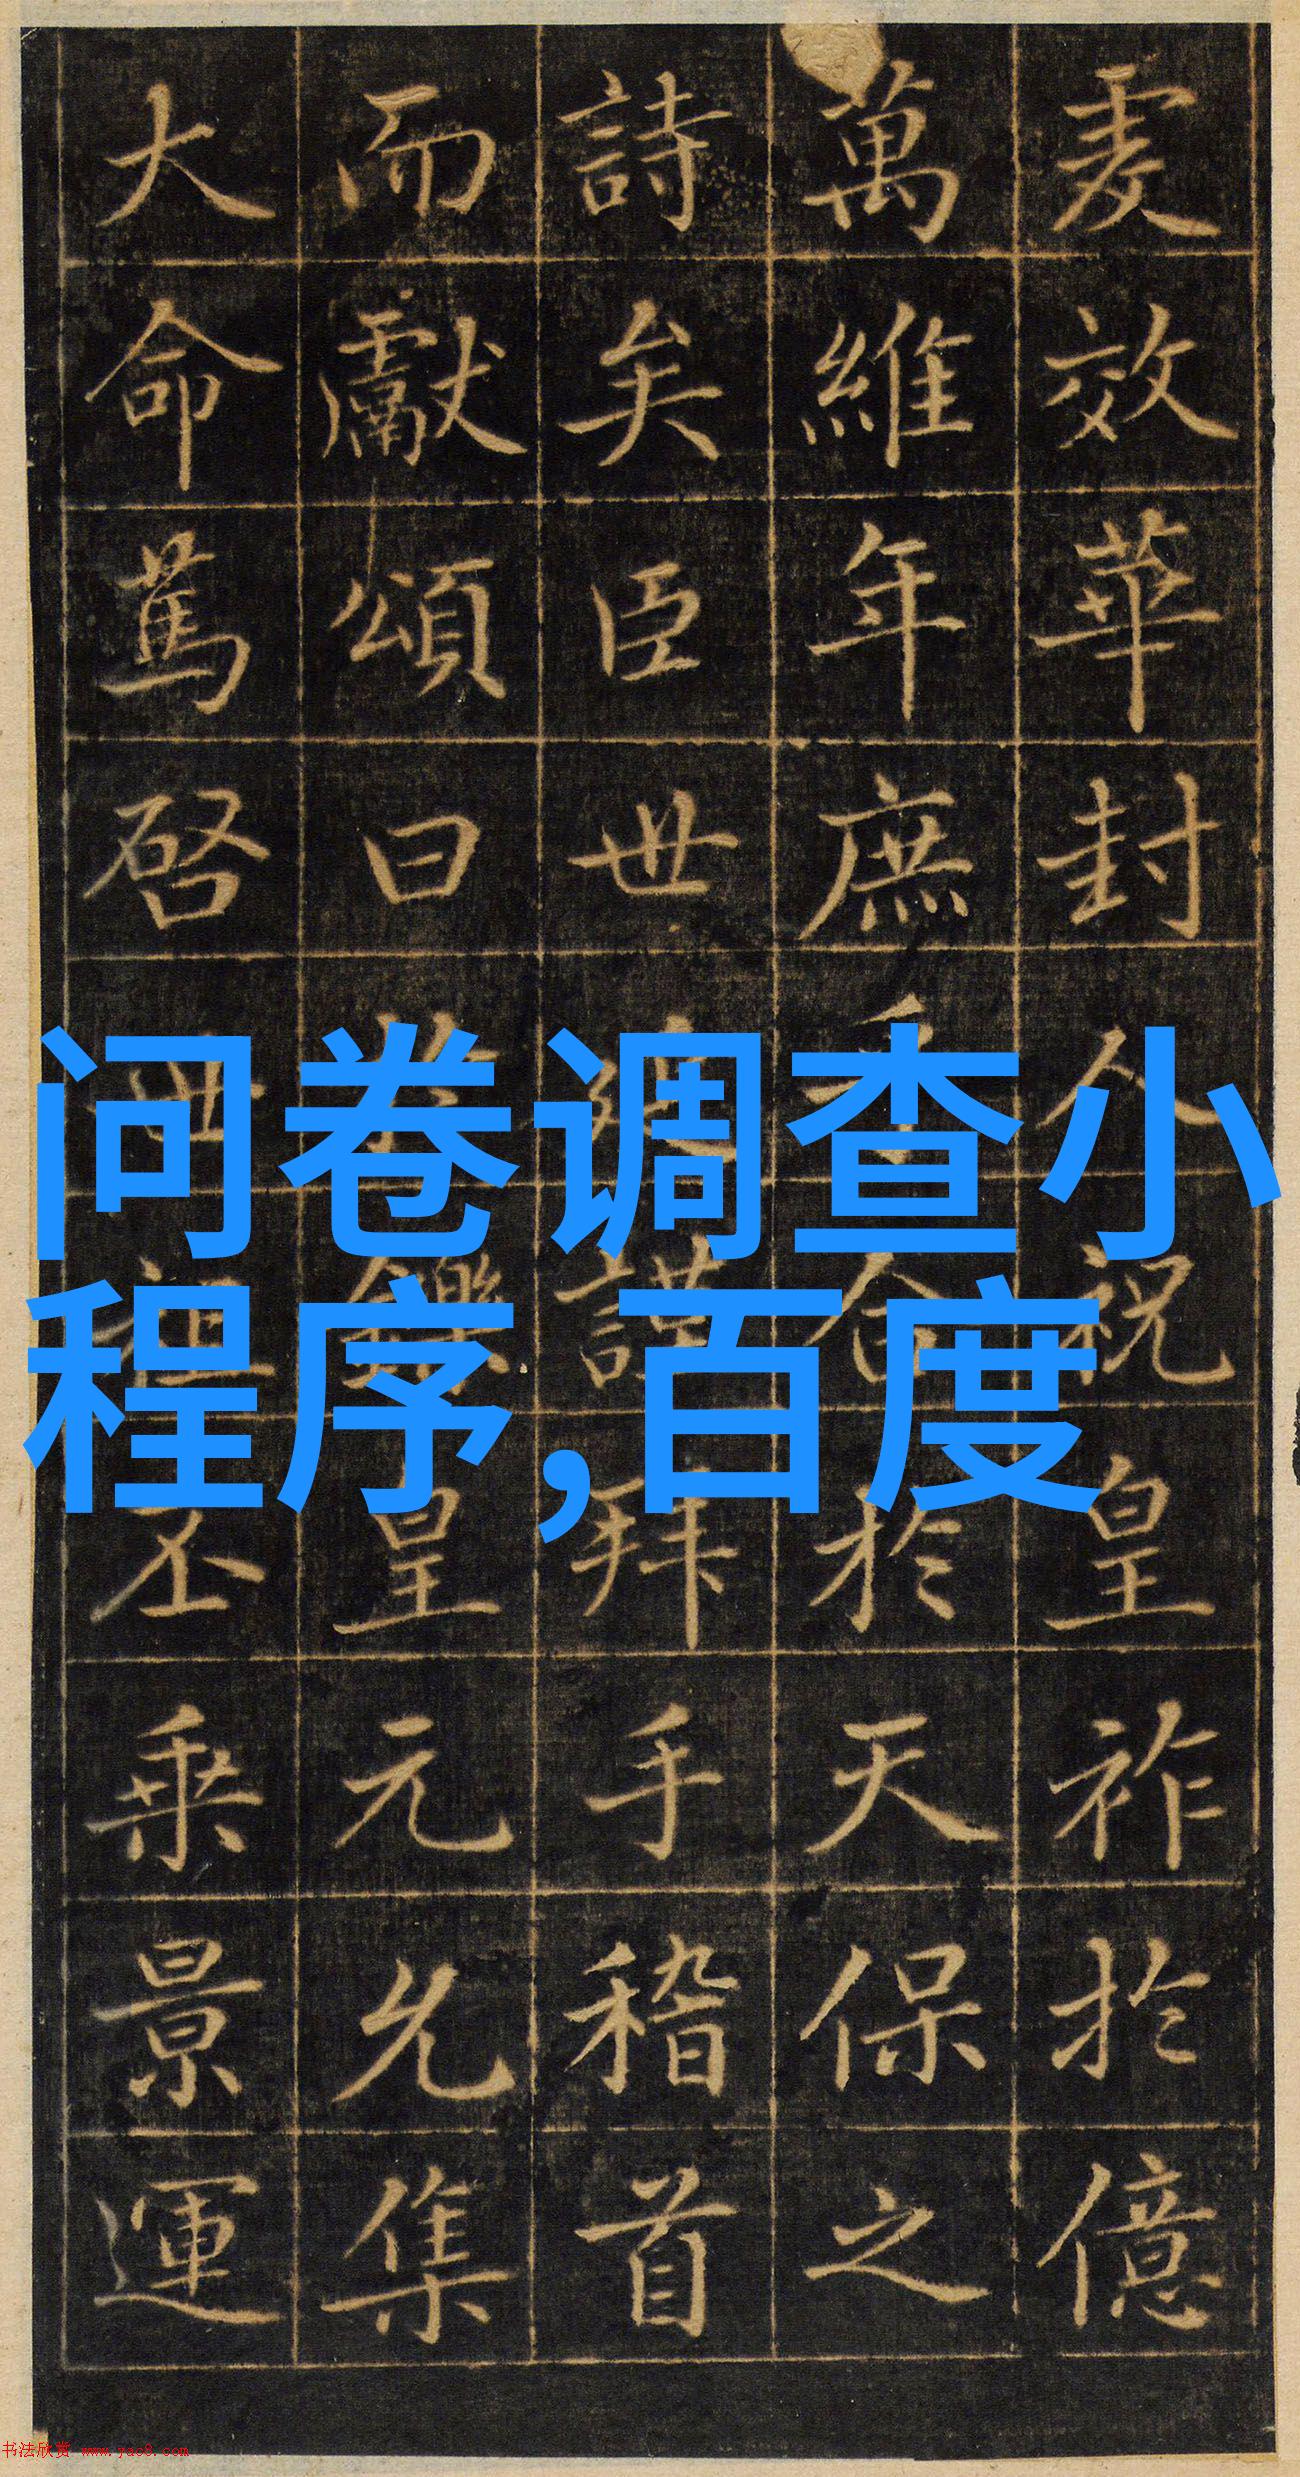 爰效華封人祝皇祚於億
萬維年庶合於天保之
詩矣臣世延謹拜手稽首
而獻頌曰鑠皇元允集
大命篤啓世祖丕乘景運
问卷调查小
程序,百度
书法欣赏 www.yac8.com